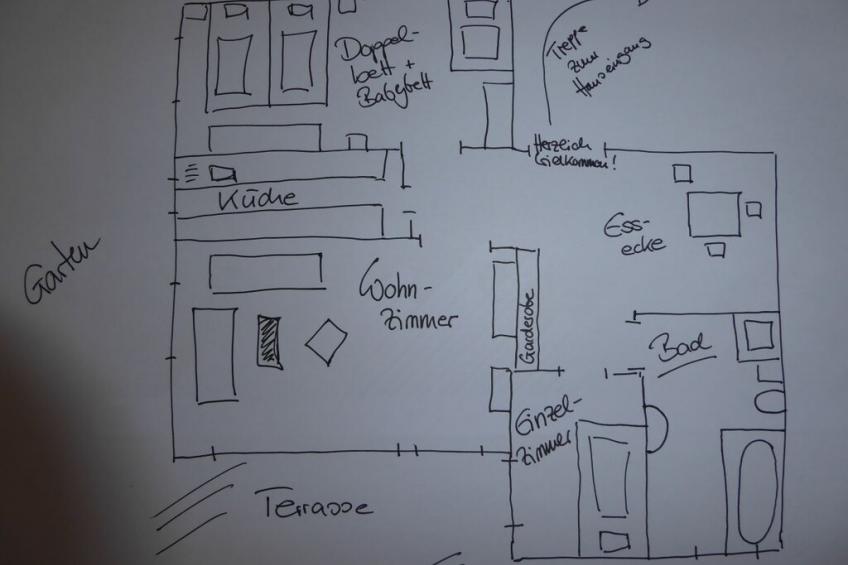 Doppel-
bett +
Babybett
Treppe
zum
Hauseingang
Herzlich
Willkommen!
Küche
Ess-
ecke
Garten
Wohn-
zimmer
Garderobe
Bad
Einzel-
zimmer
Terrasse